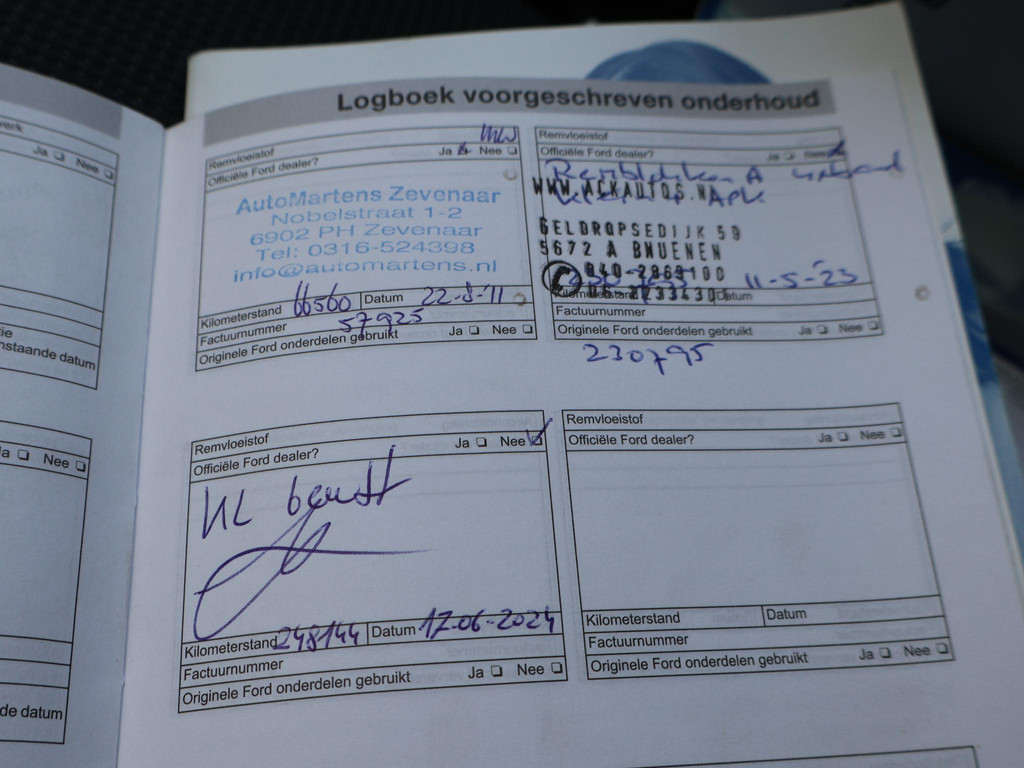 Logboek voorgeschreven onderhoud
Ja ❏ Nee ❏
nstaande datum
Ja ❏ Nee ❏
de datum
Remvloeistof
Officiële Ford dealer? Ja ❏ Nee ❏
AutoMartens Zevenaar
Nobelstraat 1-2
6902 PH Zevenaar
Tel: 0316-524398
info@automartens.nl
Kilometerstand 66560 Datum 22-8-'11
Factuurnummer 57925
Originele Ford onderdelen gebruikt Ja ❏ Nee ❏
Remvloeistof
Officiële Ford dealer? Ja ❏ Nee
WWW.ACKAUTOS.N
GELDROPSEDIJK 59
5672 A BNUENEN
040-2969100
Kilometerstand Datum 11-5-'23
Factuurnummer
Originele Ford onderdelen gebruikt Ja ❏ Nee ❏
230795
Remvloeistof
Officiële Ford dealer? Ja ❏ Nee ❏
Kilometerstand 248144 Datum 17-06-2024
Factuurnummer
Originele Ford onderdelen gebruikt Ja ❏ Nee ❏
Remvloeistof
Officiële Ford dealer? Ja ❏ Nee ❏
Kilometerstand Datum
Factuurnummer
Originele Ford onderdelen gebruikt Ja ❏ Nee ❏